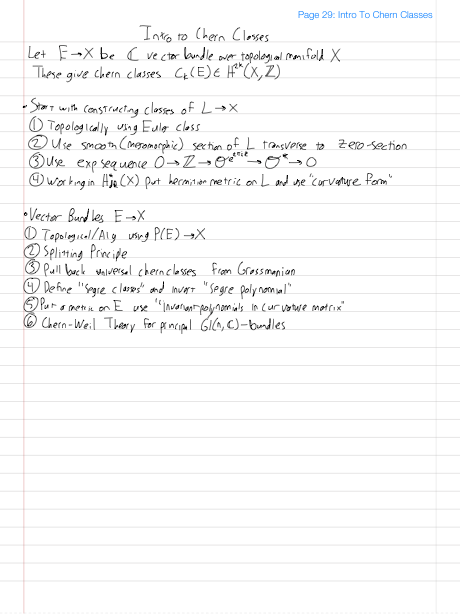 Page 29: Intro To Chern Classes
Intro to Chern Classes
Let E → X be ℂ vector bundle over topological manifold X
These give chern classes C_k(E) ∈ H^{2k}(X, ℤ)
• Start with constructing classes of L → X
① Topologically using Euler class
② Use smooth (meromorphic) section of L transverse to zero-section
③ Use exp sequence 0 → ℤ → O → O* → 0
④ Working in (X) put hermitian metric on L and use "curvature form"
• Vector Bundles E → X
① Topological/Alg using P(E) → X
② Splitting Principle
③ Pull back universal chern classes from Grassmanian
④ Define "Segre classes" and invert "Segre polynomial"
⑤ Put a metric on E use "invariant polynomials in curvature matrix"
⑥ Chern-Weil Theory for principal Gl(n, ℂ)-bundles